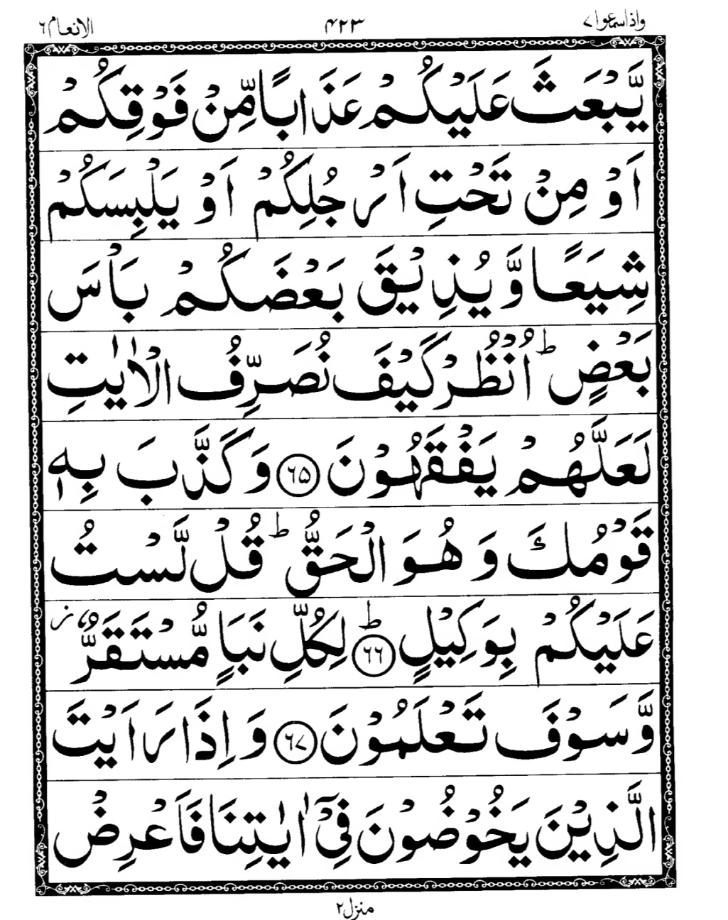 واذاسمعوا۷ ۴۲۳ الانعام۶
يَّبْعَثَ عَلَيْكُمْ عَذَابًا مِّنْ فَوْقِكُمْ
اَوْ مِنْ تَحْتِ اَرْجُلِكُمْ اَوْ يَلْبِسَكُمْ
شِيَعًا وَّ يُذِيْقَ بَعْضَكُمْ بَاْسَ
بَعْضٍ ؕ اُنْظُرْ كَيْفَ نُصَرِّفُ الْاٰيٰتِ
لَعَلَّهُمْ يَفْقَهُوْنَ ۶۵ وَ كَذَّبَ بِهٖ
قَوْمُكَ وَ هُوَ الْحَقُّ ؕ قُلْ لَّسْتُ
عَلَيْكُمْ بِوَكِيْلٍ ؕ ۶۶ لِكُلِّ نَبَاٍ مُّسْتَقَرٌّ ز
وَّ سَوْفَ تَعْلَمُوْنَ ۶۷ وَ اِذَا رَاَيْتَ
الَّذِيْنَ يَخُوْضُوْنَ فِيْۤ اٰيٰتِنَا فَاَعْرِضْ
منزل۲